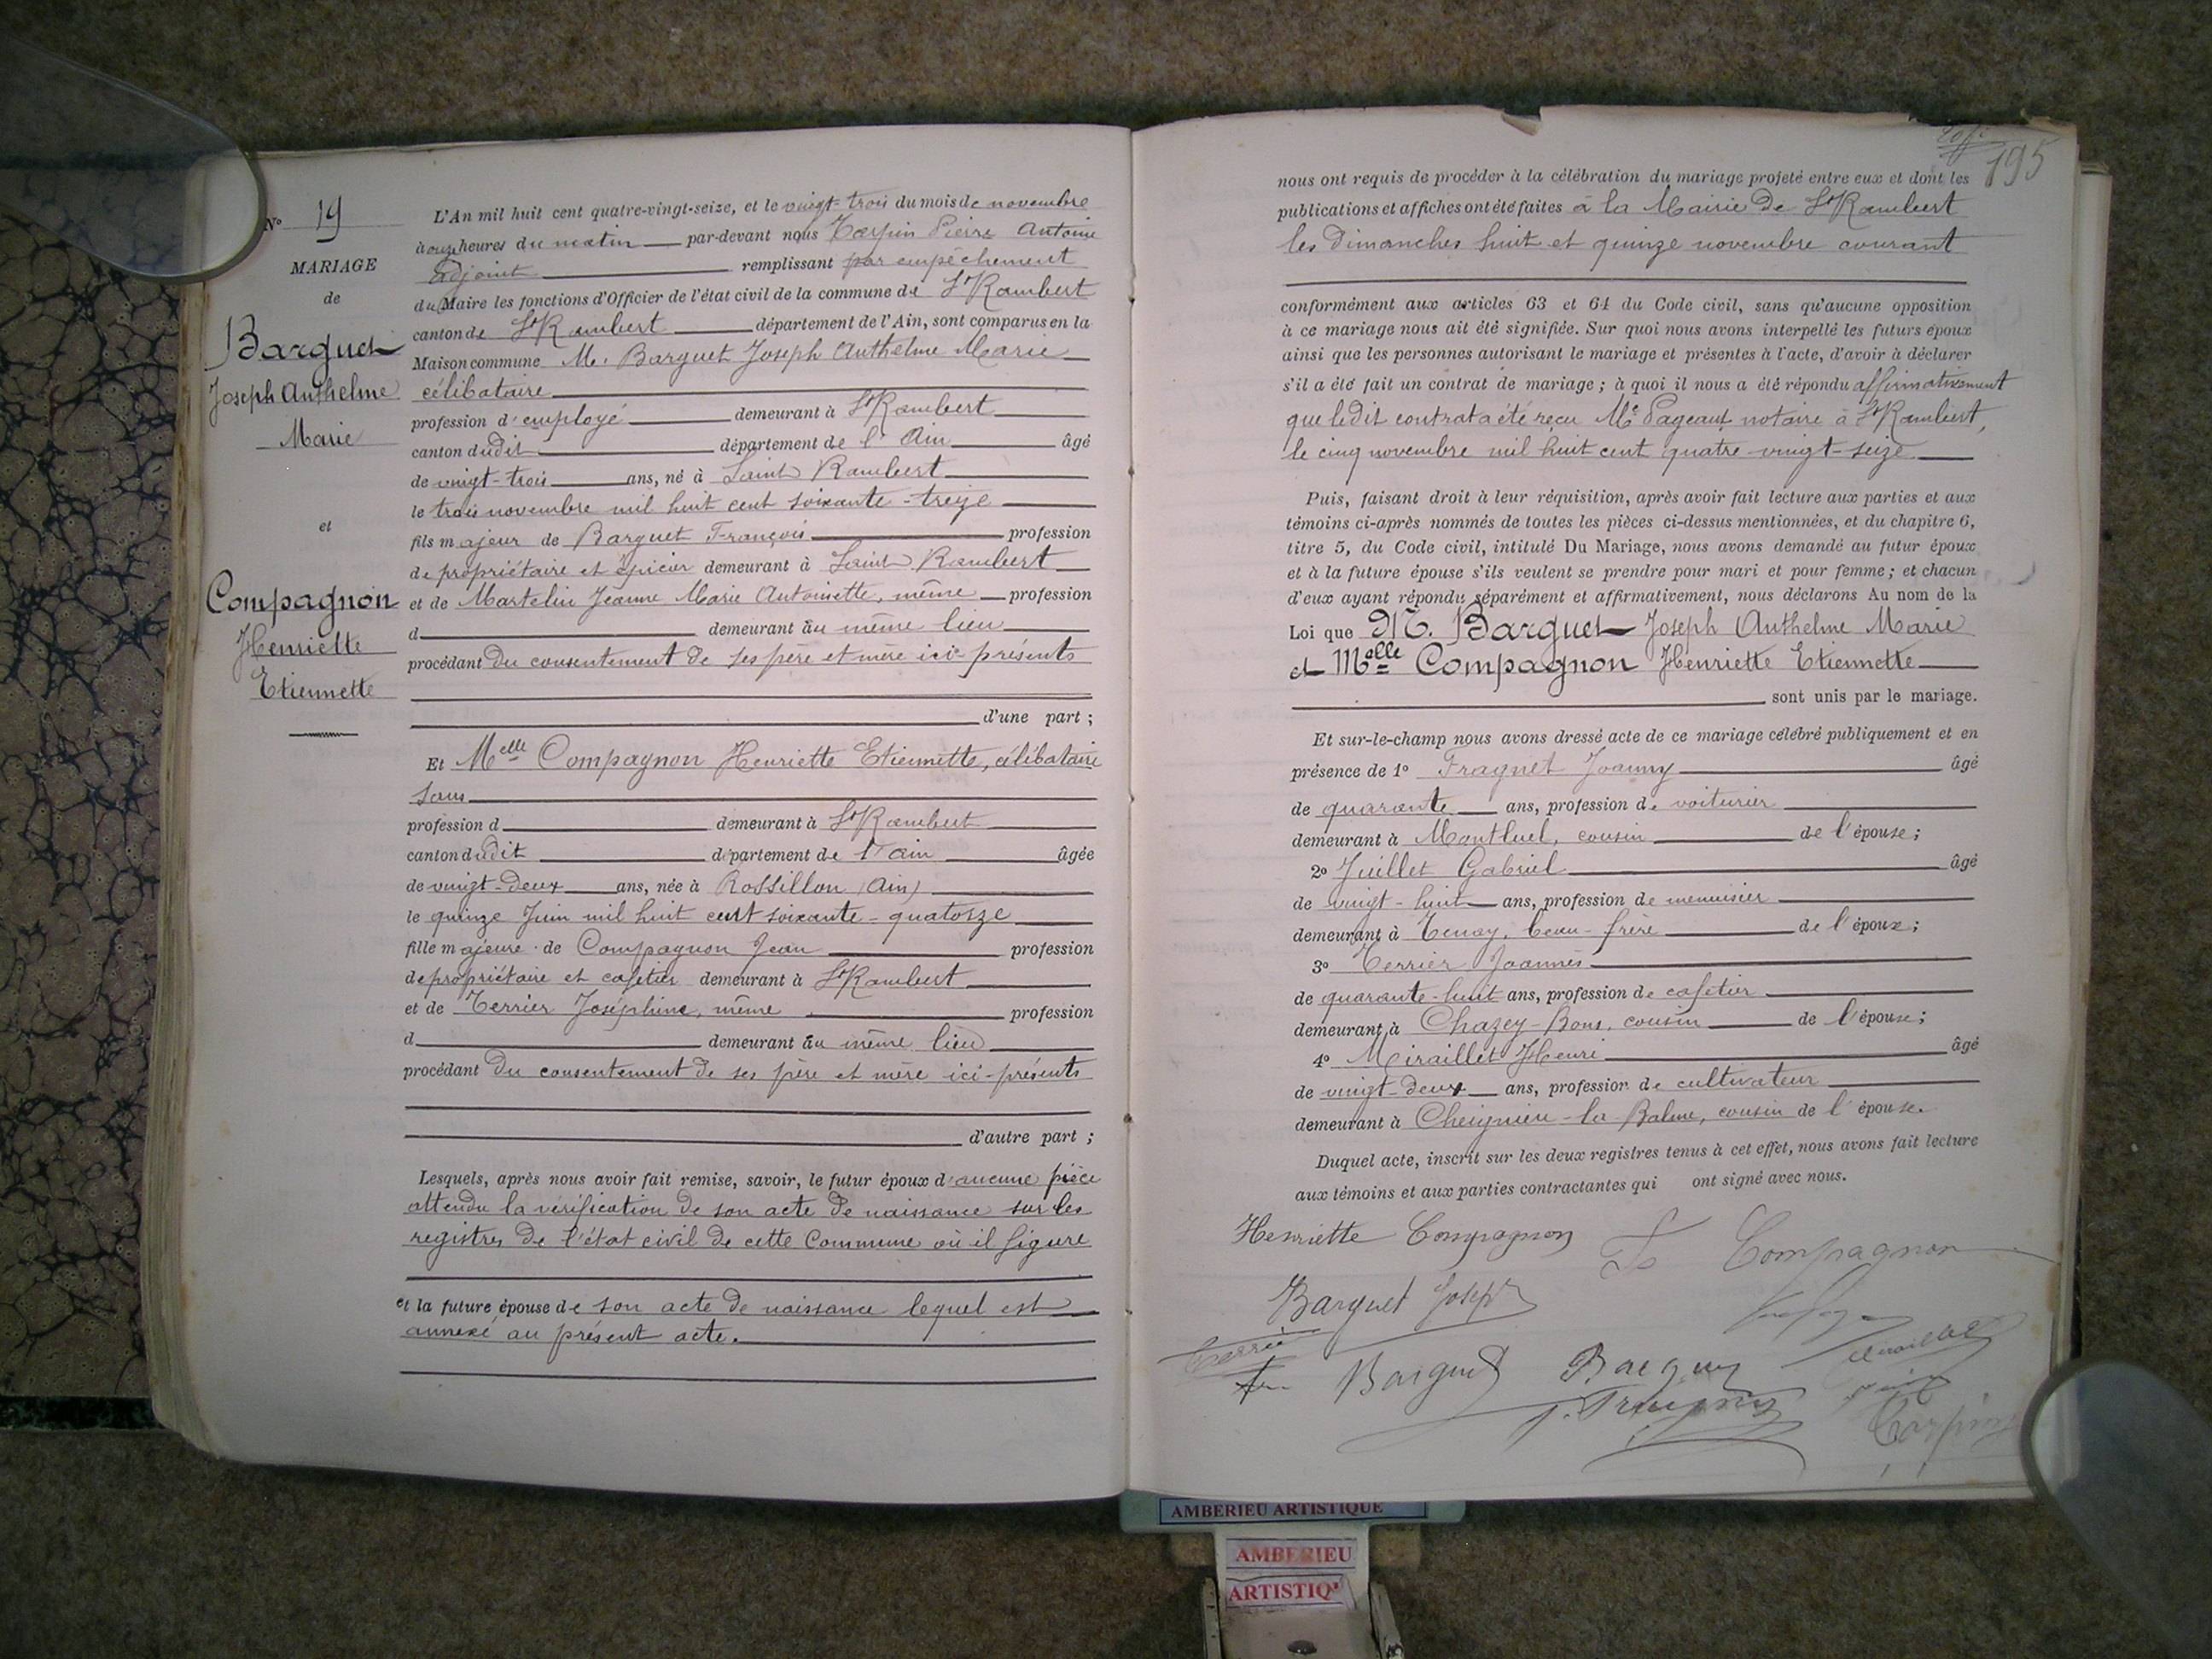 N° 19
MARIAGE
de
Barquet
Joseph Anthelme
Marie
et
Compagnon
Henriette
Etiennette
L'An mil huit cent quatre-vingt-seize, et le vingt-trois du mois de novembre
à onze heures du matin par-devant nous Tarpin Pierre Antoine
adjoint remplissant par empêchement
du Maire les fonctions d'Officier de l'état civil de la commune de St Rambert
canton de St Rambert département de l'Ain, sont comparus en la
Maison commune M. Barquet Joseph Anthelme Marie
célibataire
profession d'employé demeurant à St Rambert
canton dudit département de l'Ain âgé
de vingt-trois ans, né à Saint Rambert
le trois novembre mil huit cent soixante-treize
fils majeur de Barquet François profession
de propriétaire et épicier demeurant à Saint Rambert
et de Martelin Jeanne Marie Antoinette, même profession
d demeurant au même lieu
procédant du consentement de ses père et mère ici présents
d'une part ;
Et Melle Compagnon Henriette Etiennette, célibataire
sans
profession d demeurant à St Rambert
canton dudit département de l'Ain âgée
de vingt-deux ans, née à Rossillon (Ain)
le quinze Juin mil huit cent soixante-quatorze
fille majeure de Compagnon Jean profession
de propriétaire et cafetier demeurant à St Rambert
et de Terrier Joséphine, même profession
d demeurant au même lieu
procédant du consentement de ses père et mère ici-présents
d'autre part ;
Lesquels, après nous avoir fait remise, savoir, le futur époux d'aucune pièce
attendu la vérification de son acte de naissance sur les
registres de l'état civil de cette Commune où il figure
et la future épouse de son acte de naissance lequel est
annexé au présent acte.
195
nous ont requis de procéder à la célébration du mariage projeté entre eux et dont les
publications et affiches ont été faites à la Mairie de St Rambert
les dimanches huit et quinze novembre courant
conformément aux articles 63 et 64 du Code civil, sans qu'aucune opposition
à ce mariage nous ait été signifiée. Sur quoi nous avons interpellé les futurs époux
ainsi que les personnes autorisant le mariage et présentes à l'acte, d'avoir à déclarer
s'il a été fait un contrat de mariage ; à quoi il nous a été répondu affirmativement
que ledit contrat a été reçu Me Pageaut notaire à St Rambert,
le cinq novembre mil huit cent quatre-vingt-seize
Puis, faisant droit à leur réquisition, après avoir fait lecture aux parties et aux
témoins ci-après nommés de toutes les pièces ci-dessus mentionnées, et du chapitre 6,
titre 5, du Code civil, intitulé Du Mariage, nous avons demandé au futur époux
et à la future épouse s'ils veulent se prendre pour mari et pour femme ; et chacun
d'eux ayant répondu séparément et affirmativement, nous déclarons Au nom de la
Loi que M. Barquet Joseph Anthelme Marie
et Melle Compagnon Henriette Etiennette
sont unis par le mariage.
Et sur-le-champ nous avons dressé acte de ce mariage célébré publiquement et en
présence de 1° Fragnet Joanny âgé
de quarante ans, profession de voiturier
demeurant à Montluel, cousin de l'épouse ;
2° Juillet Gabriel âgé
de vingt-huit ans, profession de menuisier
demeurant à Tenay, beau-frère de l'époux ;
3° Terrier Joannès
de quarante-huit ans, profession de cafetier
demeurant à Chazey-Bons, cousin de l'épouse ;
4° Miraillet Henri âgé
de vingt-deux ans, profession de cultivateur
demeurant à Cheignieu-la-Balme, cousin de l'épouse.
Duquel acte, inscrit sur les deux registres tenus à cet effet, nous avons fait lecture
aux témoins et aux parties contractantes qui ont signé avec nous.
Henriette Compagnon Compagnon
Barquet Joseph
Terrier Miraillet
Barquet Barquet
Tarpin
AMBERIEU ARTISTIQUE
AMBERIEU
ARTISTIQ